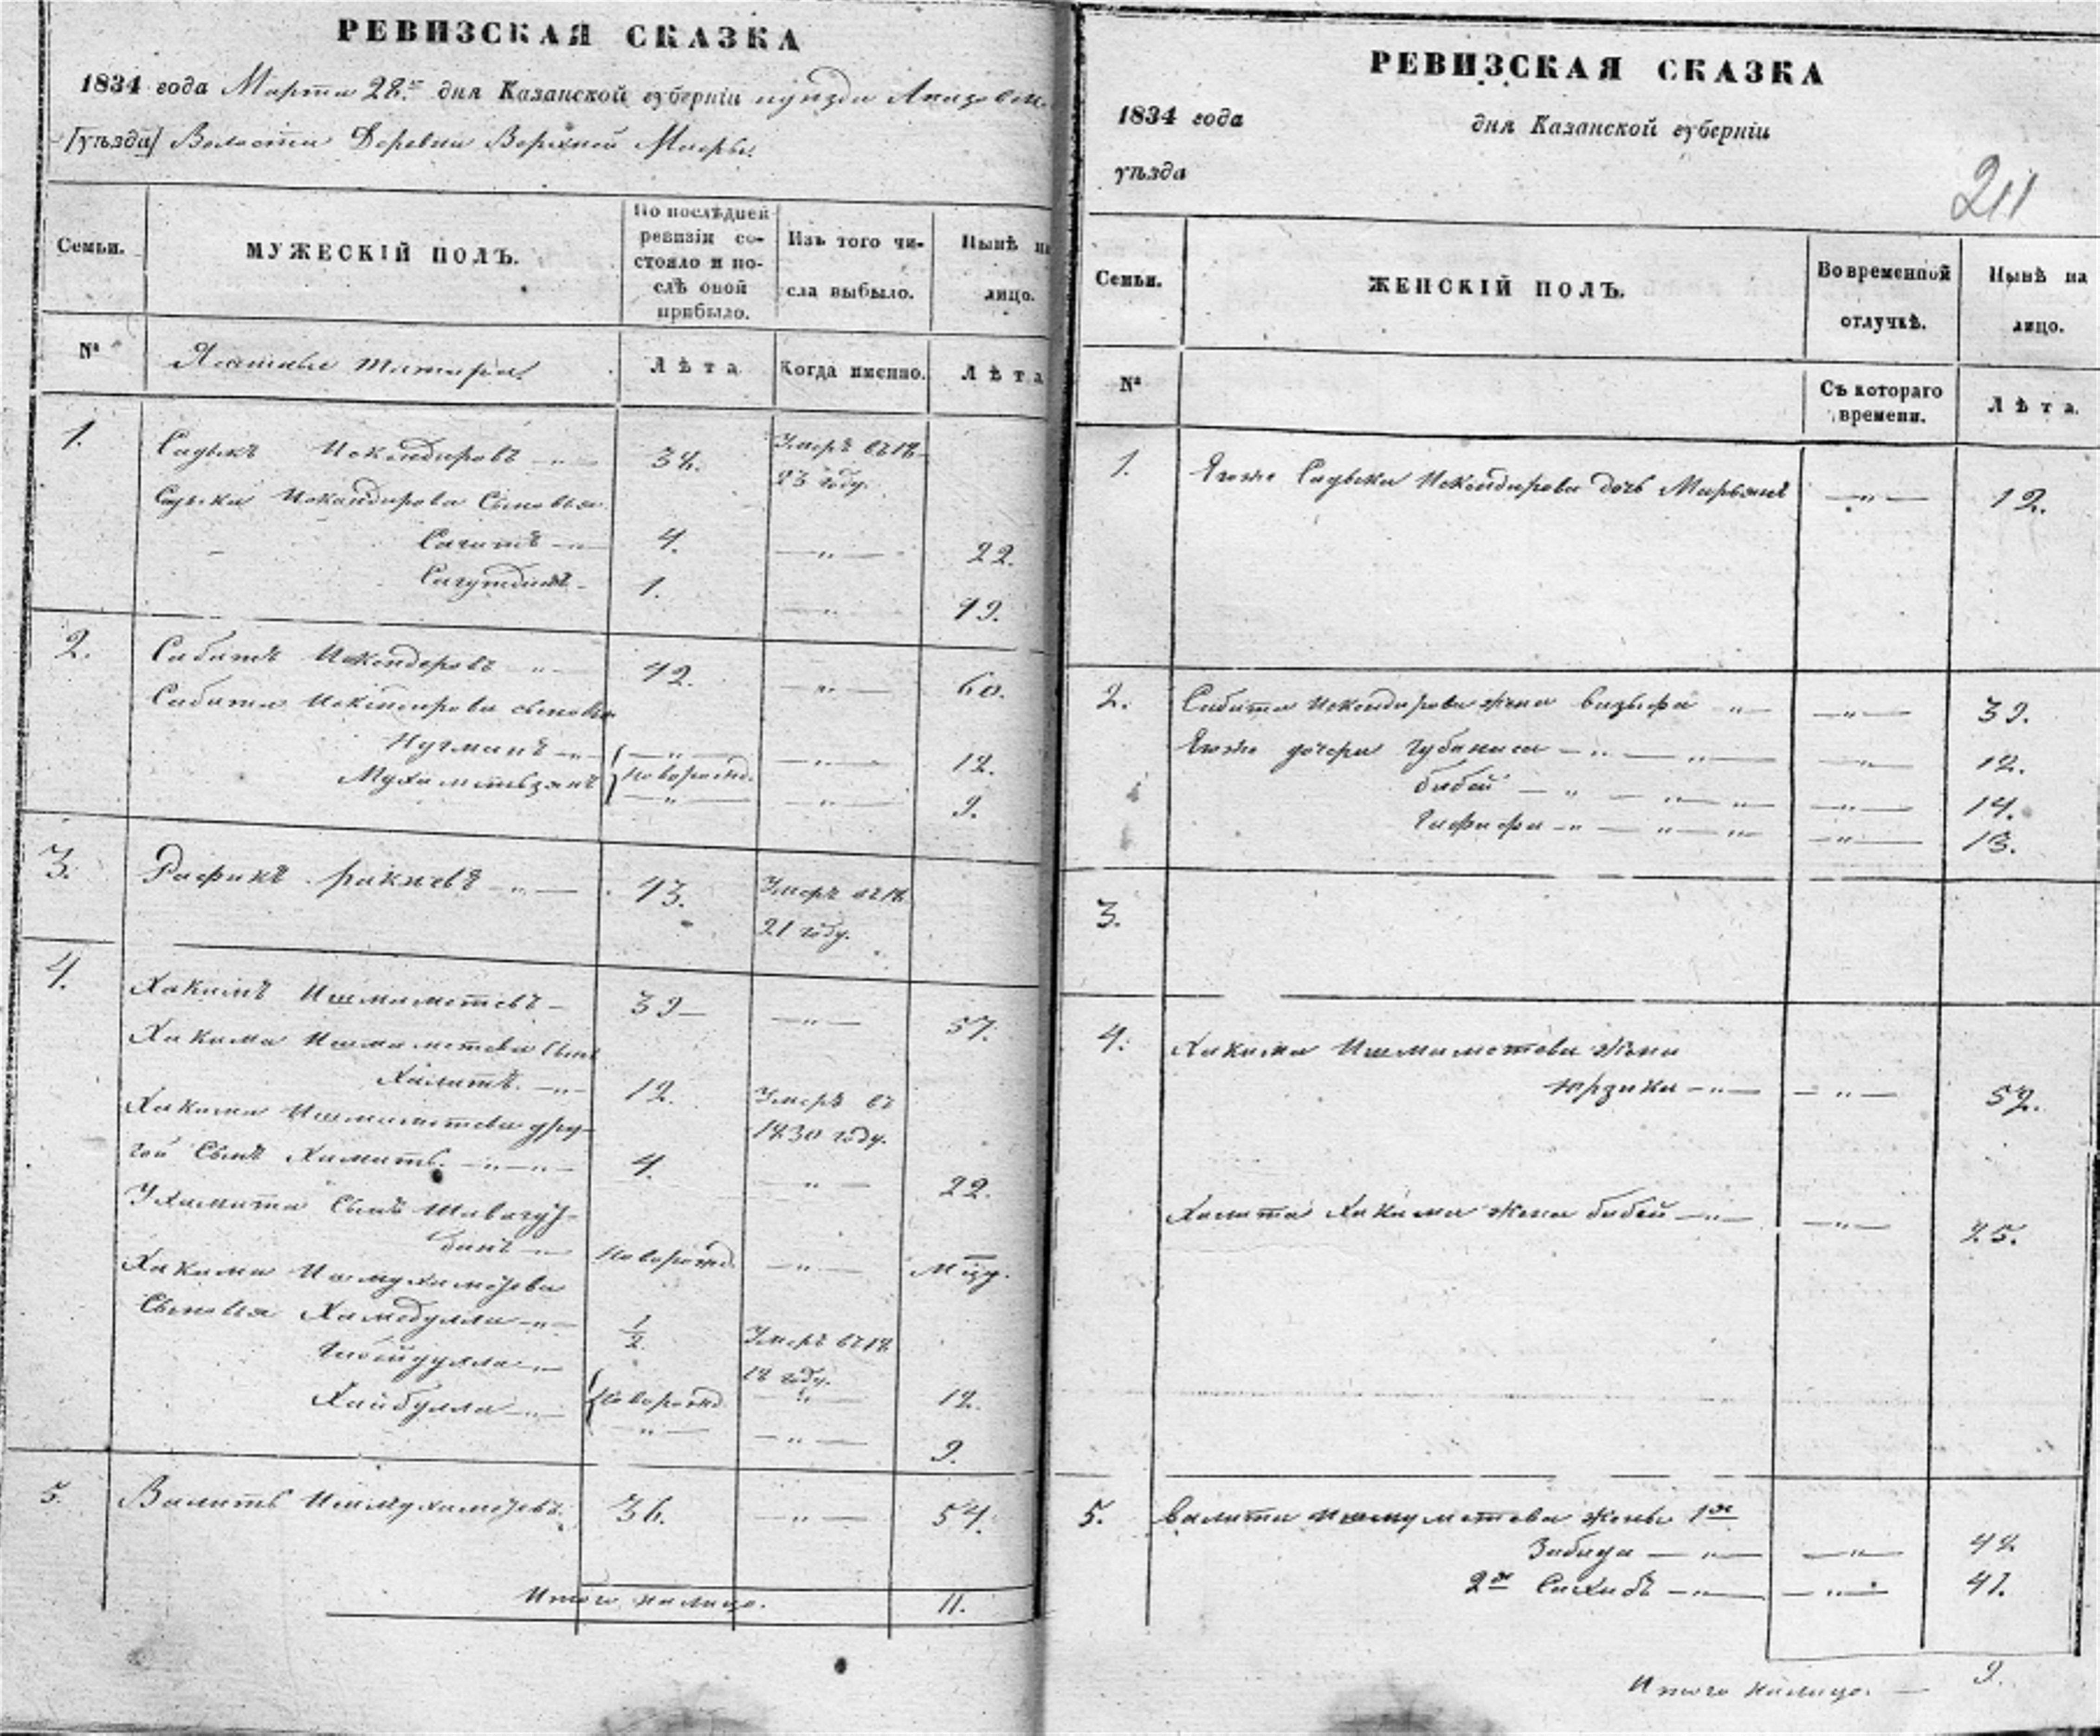 РЕВИЗСКАЯ СКАЗКА
1834 года Марта 28го дня Казанской губерніи
[уѣзда] Волости Деревни Верхней
Семьи.
МУЖЕСКІЙ ПОЛЪ.
По послѣдней ревизіи со-
стояло и по-
слѣ оной
прибыло.
Изъ того чи-
сла выбыло.
Нынѣ на
лицо.
№
Ясашные татары.
Лѣта
Когда именно.
Лѣта
1. Садыкъ Искендировъ 38. Умеръ въ 18
23 году.
Садыка Искандирова Сыновья
Сагитъ 4. 22.
Сагутдинъ 1. 19.
2. Сабитъ Искендеровъ 42. 60.
Сабита Искендирова сыновья
Нугманъ 12.
Мухаметьзянъ Новорожд. 9.
3. Рафикъ 43. Умеръ въ 18
21 году.
4. Хакимъ Ишмаметевъ 39 57.
Хакима Ишмаметева Сынъ
Халитъ. 12. Умеръ въ
1830 году.
Хакима Ишмаметева дру-
гой Сынъ Хамитъ. 4. 22.
У Хамита Сынъ
Новорожд.
Хакима Ишмухаметева
Сыновья Хамодулла 1/2. Умеръ въ 18
18 году.
Новорожд. 12.
Хайбулла 9.
5. Валитъ Ишмухаметевъ. 36. 54.
Итого налицо. 11.
РЕВИЗСКАЯ СКАЗКА
1834 года дня Казанской губерніи
уѣзда
211
Семьи.
ЖЕНСКІЙ ПОЛЪ.
Во временной
отлучкѣ.
Нынѣ на
лицо.
№
Съ котораго
времени.
Лѣта.
1. Садыка Искендирова дочь Марьямъ 12.
2. Сабита Искендирова жена 39.
дочери 12.
бибей 14.
Гафифа 13.
3.
4. Хакима Ишмаметева Жена
52.
Халита Хакима жена бибей 25.
5. Валита Ишмуметева жены 1я
Забида 42
2я Сахибъ 41.
Итого налицо. 9.